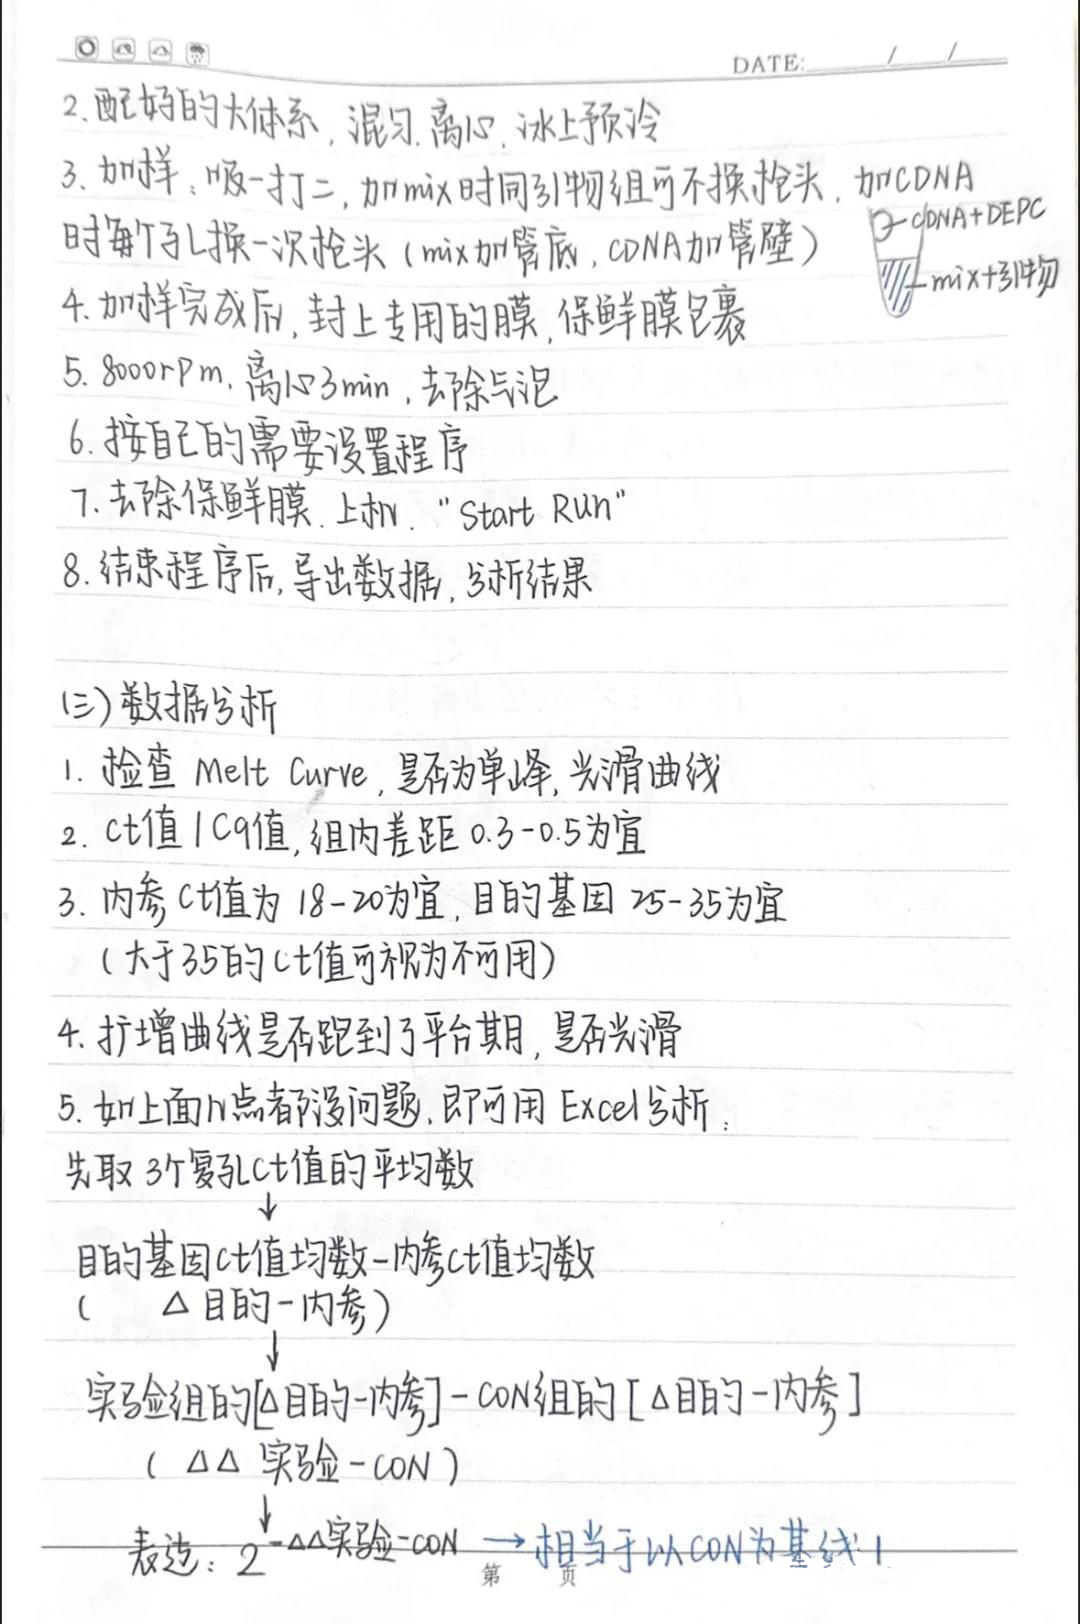 DATE: / /
2.配好的大体系,混匀.离心,冰上预冷
3.加样:吸一打二,加mix时同引物组可不换枪头,加CDNA
时每个孔换一次枪头(mix加管底,CDNA加管壁)
CDNA+DEPC
mix+引物
4.加样完成后,封上专用的膜,保鲜膜包裹
5. 8000rpm,离心3min,去除气泡
6.按自己的需要设置程序
7.去除保鲜膜.上机."Start Run"
8.结束程序后,导出数据,分析结果
(三)数据分析
1. 检查 Melt Curve,是否为单峰,光滑曲线
2. Ct值/Cq值,组内差距 0.3-0.5为宜
3. 内参Ct值为 18-20为宜,目的基因 25-35为宜
(大于35的Ct值可视为不可用)
4.扩增曲线是否跑到了平台期,是否光滑
5.如上面几点都没问题,即可用 Excel分析:
先取 3个复孔Ct值的平均数
↓
目的基因Ct值均数-内参Ct值均数
( △目的-内参)
↓
实验组的[△目的-内参]-CON组的[△目的-内参]
( △△ 实验-CON )
↓
表达:2-△△实验-CON →相当于以CON为基线1
第 页